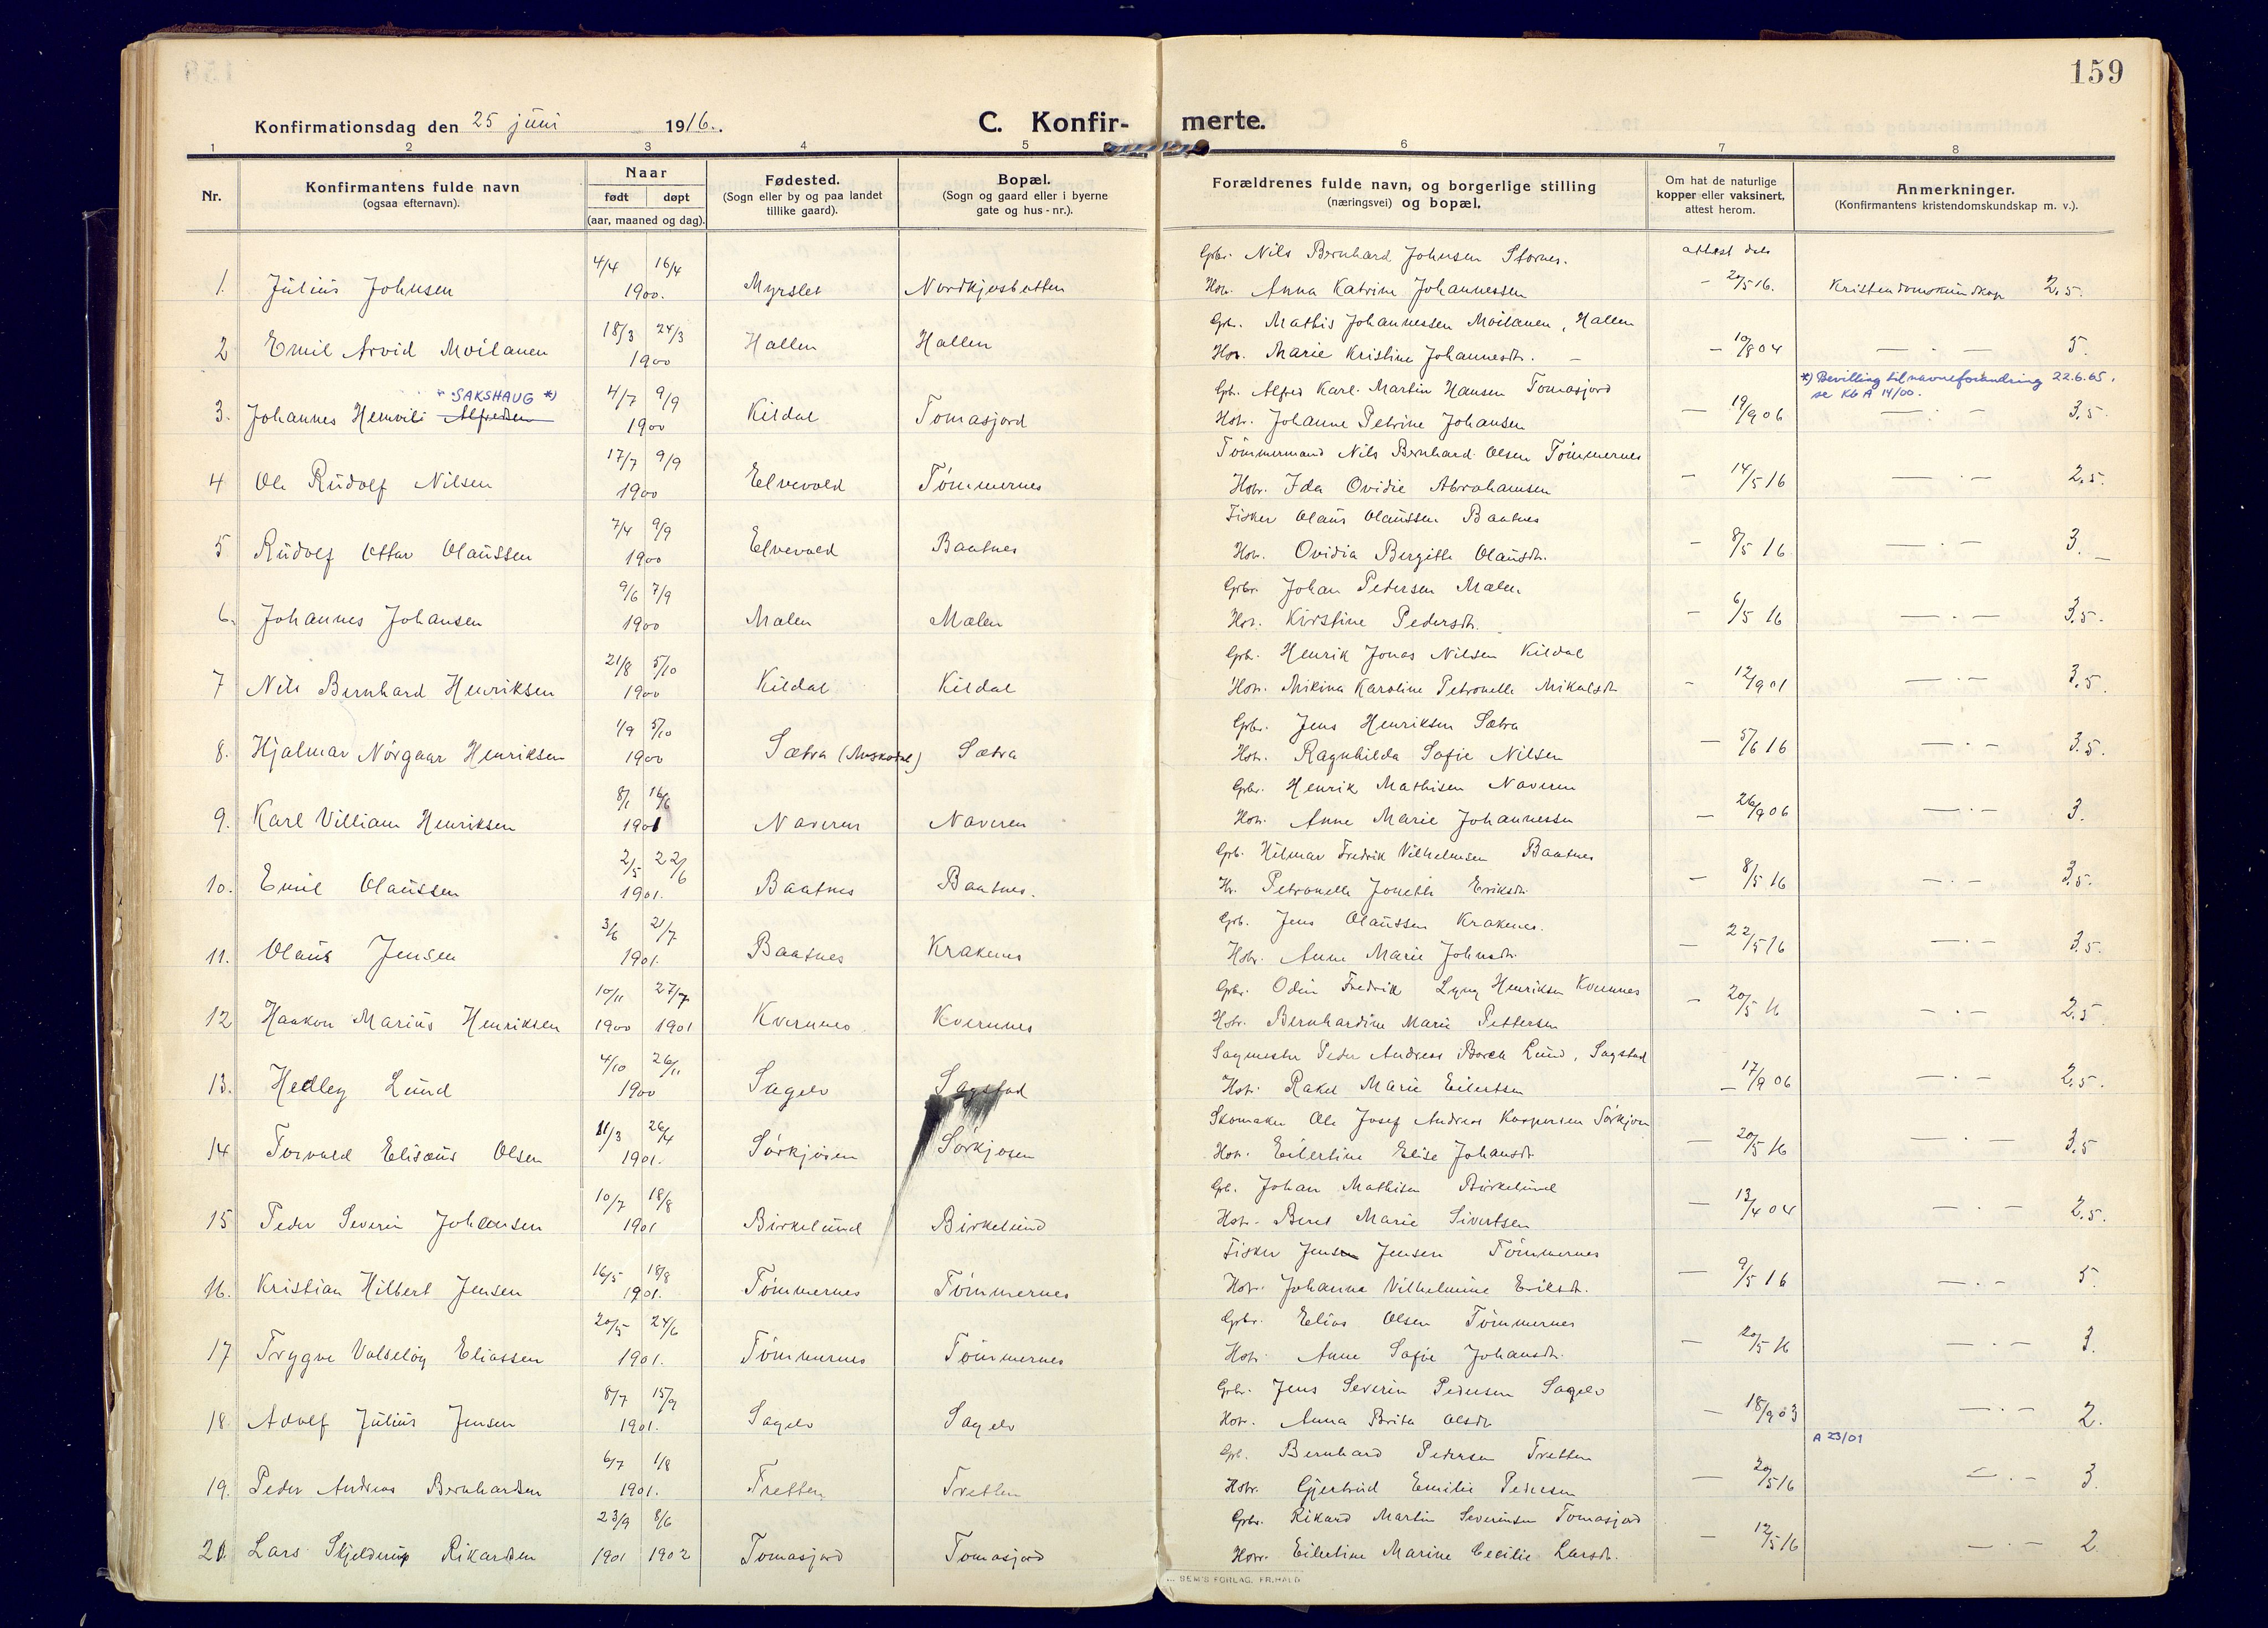 159
Konfirmationsdag den 25 juni 1916.
C. Konfir- merte.
1 2 3 4 5 6 7 8
Nr.
Konfirmantens fulde navn
(ogsaa efternavn).
Naar
født døpt
(aar, maaned og dag).
Fødested.
(Sogn eller by og paa landet
tillike gaard).
Bopæl.
(Sogn og gaard eller i byerne
gate og hus-nr.).
Forældrenes fulde navn, og borgerlige stilling
(næringsvei) og bopæl.
Om hat de naturlige
kopper eller vaksinert,
attest herom.
Anmerkninger.
(Konfirmantens kristendomskundskap m. v.).
4/4 16/4 Gbr. Nils Bernhard Johnsen Stornes. attest dat.
1. Julius Johnsen 1900. Myrslet Nordkjosbotten Hstr. Anna Katrine Johannessen – 20/5 16. Kristendomskundskap 2,5.
18/3 24/3 Gbr. Mathis Johannessen Moilanen, Hallen
2 Emil Arvid Moilanen 1900 Hallen Hallen Hstr. Marie Kristine Johannesdtr. – – 10/8 04 — . — 5.
" SAKSHAUG *) 4/7 9/9 Gbr. Alfred Karl Martin Hansen Tomasjord *) Bevilling til navneforandring 22.6.65.
se Kb A 14/00.
3. Johannes Hemvili Alfredsen 1900 Kildal Tomasjord Hstr. Johanne Petrine Johansen — 19/9 06 — . — 3.5.
17/7 9/9 Tömmermand Nils Bernhard Olsen Tömmernes
4 Ole Rudolf Nilsen 1900 Elvevold Tömmernes Hstr. Ida Ovidie Abrahamsen – 14/5 16 — . — 2.5.
7/4 9/9 Fisker Olaus Olaussen Baatnes
5 Rudolf Ottar Olaussen 1900 Elvevold Baatnes Hstr. Ovidia Bergitte Olausdtr. – 8/5 16 — . — 3.
9/6 7/9 Gbr. Johan Pedersen Malen
6. Johannes Johansen 1900 Malen Malen Hstr. Kirstine Pedersdtr. – 6/5 16 — . — 3.5.
21/8 5/10 Gbr. Henrik Jonas Nilsen Kildal
7 Nils Bernhard Henriksen 1900 Kildal Kildal Hstr. Mikina Karoline Petronelle Mikalsdtr. – 12/9 01 — . — 3.5.
1/9 5/10 Gbr. Jens Henriksen Sætra
8. Hjalmar Nörgaar Henriksen 1900 Sætra (Muskodal) Sætra Hstr. Ragnhilda Sofie Nilsen – 5/6 16 — . — 3.5.
8/1 16/6 Gbr. Henrik Mathisen Naveren
9. Karl Villiam Henriksen 1901 Naveren Naveren Hstr. Anne Marie Johannessen – 26/9 06 — . — 3.
2/5 22/6 Gbr. Hilmar Fredrik Vilhelmsen Baatnes
10. Emil Olaussen 1901. Baatnes Baatnes. Hstr. Petronelle Jonette Eriksdtr. – 8/5 16 — . — 3.5.
3/6 21/7 Gbr. Jens Olaussen Krakenes.
11. Olaus Jensen 1901. Baatnes Krakenes Hstr. Anne Marie Johnsdtr. – 22/5 16 — . — 3.5.
10/11 27/7 Gbr. Odin Fredrik Lyng Henriksen Kvernnes
12 Haakon Marius Henriksen 1900 1901 Kvernnes Kvernnes Hstr. Bernhardine Marie Pettersen – 20/5 16 — . — 2.5.
4/10 26/11 Sagmester Peder Andreas Borch Lund, Sagstad
13. Hedley Lund 1900 Sagelv Sagstad Hstr. Rakel Marie Eilertsen – 17/9 06 — . — 2.5.
11/3 26/4 Skomaker Ole Josef Andreas Kaspersen Sörkjosen
14 Torvald Elisæus Olsen 1901. Sörkjosen Sörkjosen Hstr. Eilertine Elise Johansdtr. — 20/5 16 — . — 3.5
10/7 18/8 Gb. Johan Mathisen Birkelund
15 Peder Severin Johansen 1901 Birkelund Birkelund Hstr. Beret Marie Sivertsen – 13/4 04 — . — 2.5.
16/5 18/8 Fisker Jens Jensen Tömmernes
16. Kristian Hilbert Jensen 1901. Tömmernes Tömmernes Hstr. Johanna Vilhelmine Eriksdtr. — 9/5 16 — . — 5.
20/5 24/6 Gbr. Elias Olsen Tömmernes
17 Trygve Valselög Eliassen 1901. Tömmernes Tömmernes Hstr. Anne Sofie Johansdtr. – 20/5 16 — . — 3.
8/7 15/9 Gbr. Jens Severin Pedersen Sagelv
18. Adolf Julius Jensen 1901. Sagelv Sagelv Hstr. Anna Brita Olsdtr. — 18/9 03 — . — 2.
6/7 1/8 Gb. Bernhard Pedersen Tretten A 23/01
19. Peder Andreas Bernhardsen 1901. Tretten Tretten Hstr. Gjertrud Emilie Pedersen — 20/5 16 — . — 3.
23/9 8/6 Gbr. Rikard Martin Severinsen Tomasjord
20. Lars Skjelderup Rikardsen 1901 1902 Tomasjord Tomasjord Hstr. Eilertine Marine Cecilie Larsdtr. – 12/5 16 — . — 2.
SEM'S FORLAG, FR.HALD